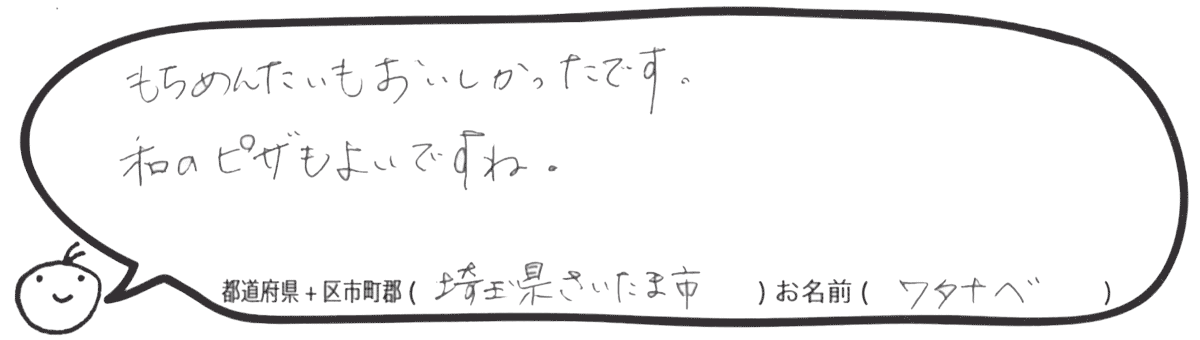 もちめんたいもおいしかったです。
和のピザもよいですね。
都道府県+区市町郡( 埼玉県さいたま市 )お名前( ワタナベ )